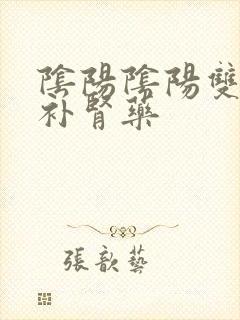 陰陽陰陽雙
补腎藥
張歆藝